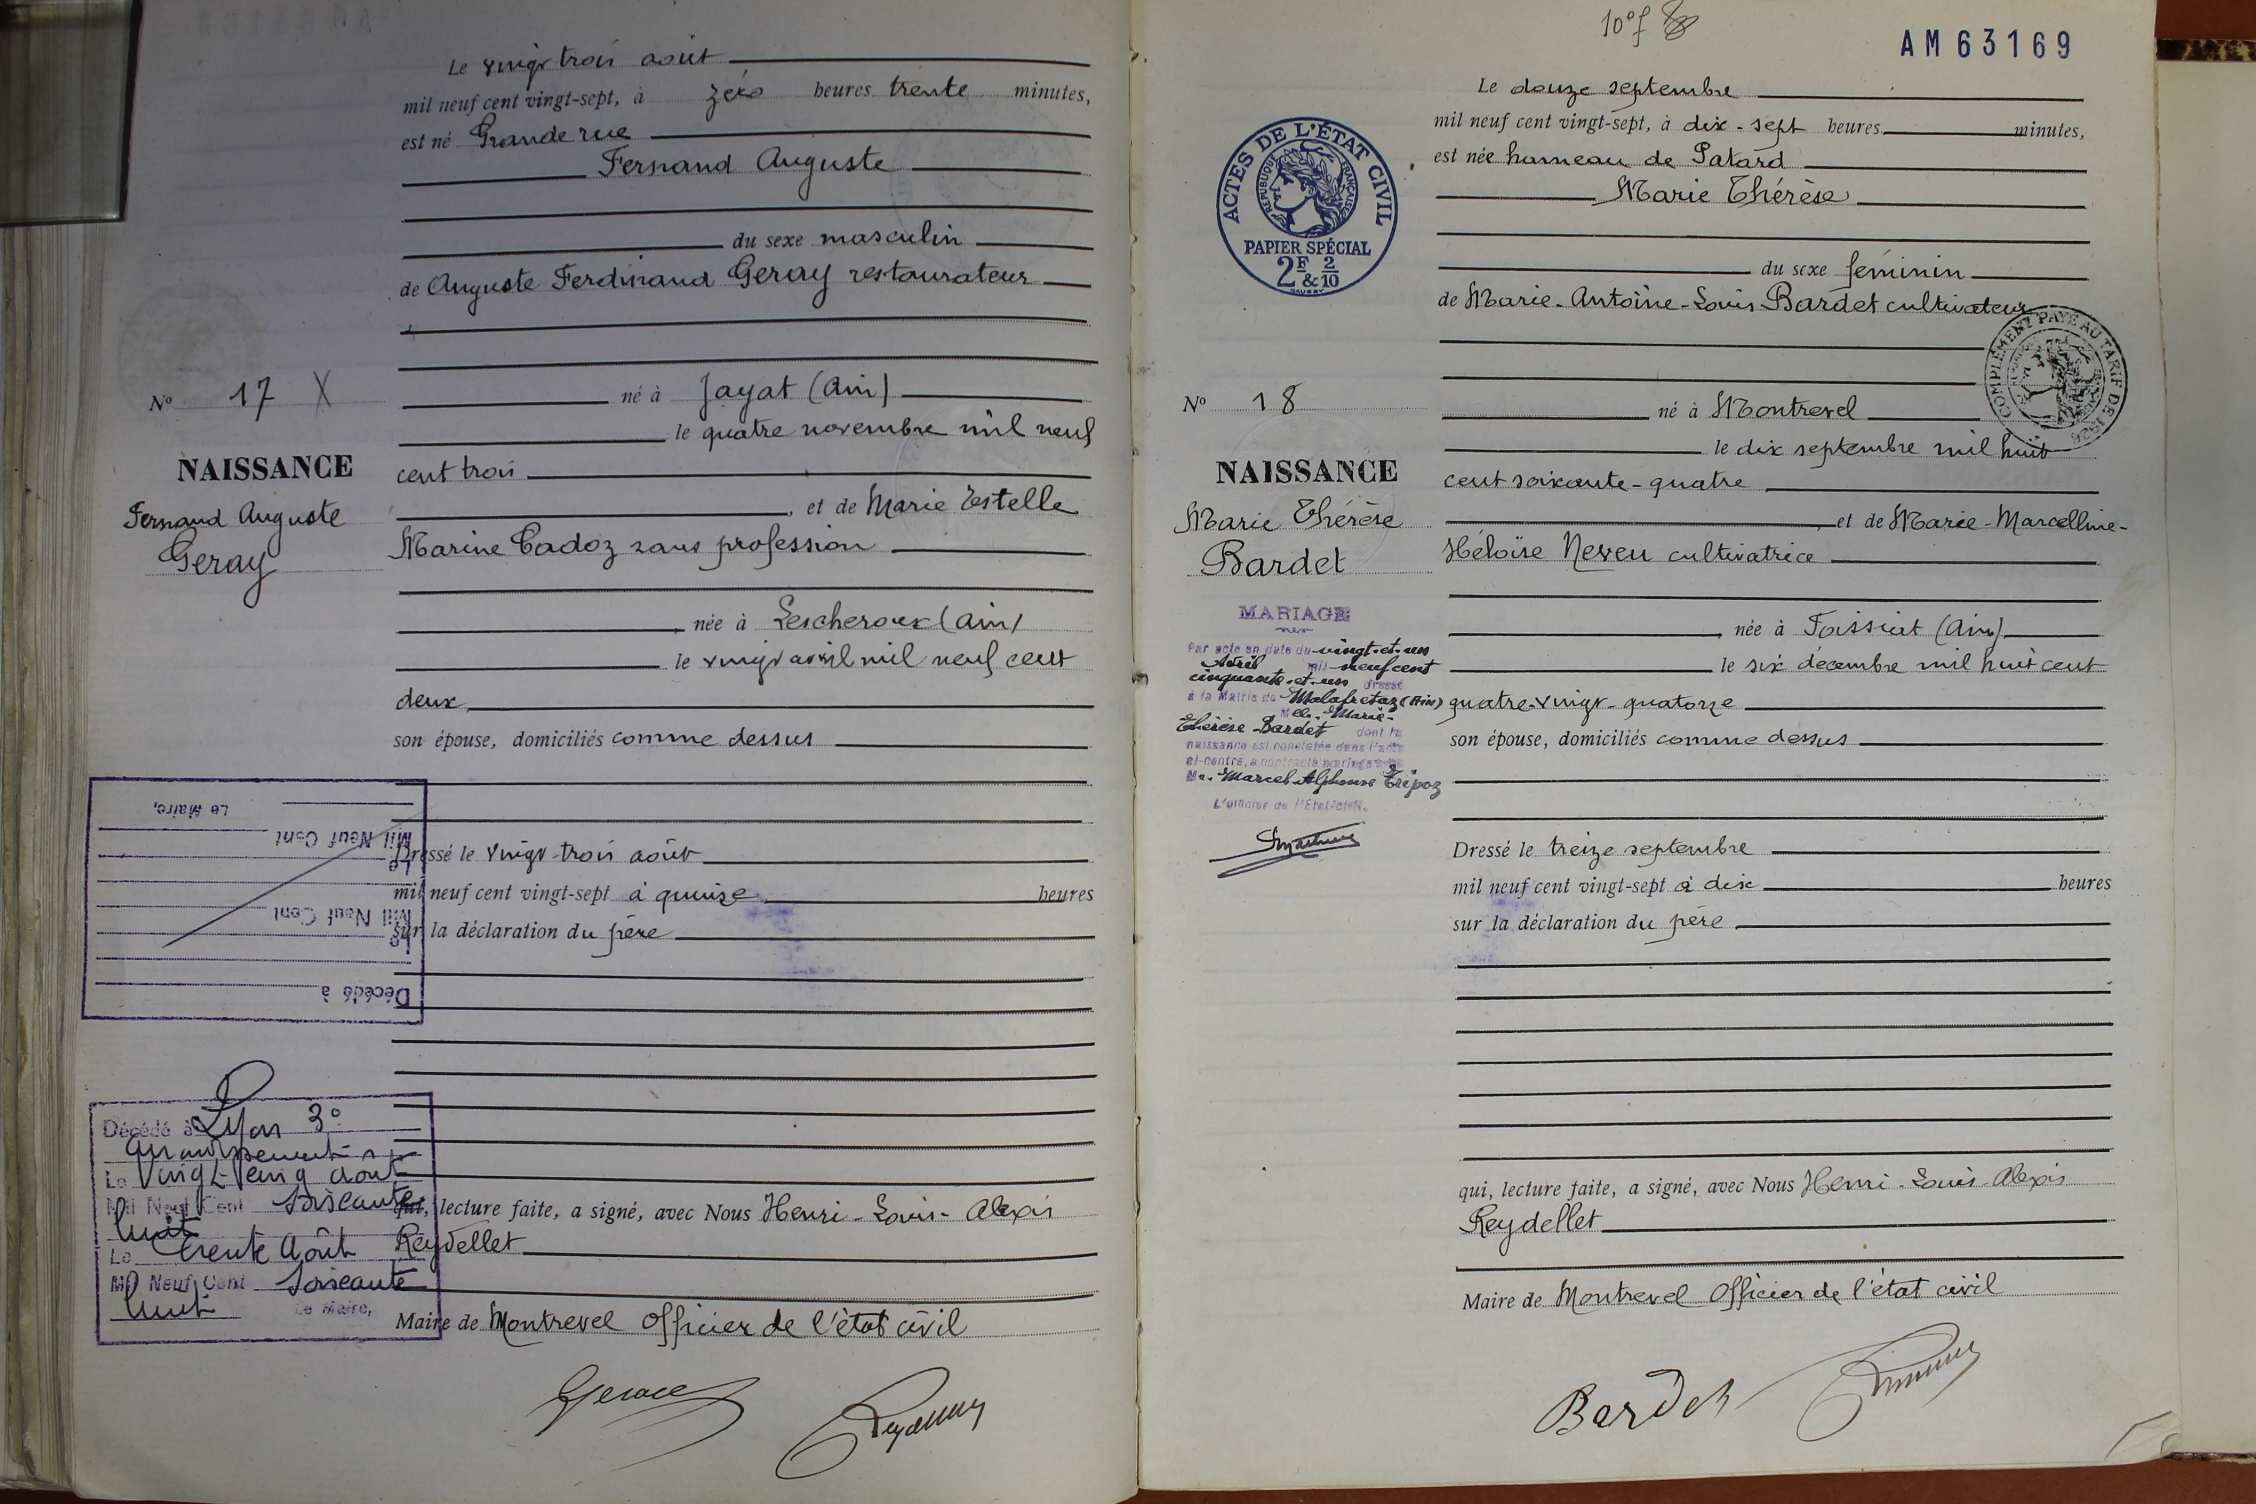 Le vingt trois août
mil neuf cent vingt-sept, à zéro heures trente minutes,
est né Grande rue
Fernand Auguste
du sexe masculin
de Auguste Ferdinand Geray restaurateur
N° 17 X
né à Jayat (Ain)
le quatre novembre mil neuf
cent trois
NAISSANCE
Fernand Auguste
Geray
et de Marie Estelle
Marine Cadoz sans profession
née à Lescheroux (Ain)
le vingt avril mil neuf cent
deux
son épouse, domiciliés comme dessus
Dressé le vingt-trois août
mil neuf cent vingt-sept à quinze heures
sur la déclaration du père
Décédé à
Le
Mil Neuf Cent
Le
Mil Neuf Cent
Le Maire,
Décédé à Lyon 3°
arrondissement
Le vingt cinq août
Mil Neuf Cent soixante
huit
Le trente août
Mil Neuf Cent soixante
huit Le Maire,
qui, lecture faite, a signé, avec Nous Henri-Louis-Alexis
Reydellet
Maire de Montrevel Officier de l'état civil
10° f
AM63169
ACTES DE L'ÉTAT CIVIL
RÉPUBLIQUE FRANÇAISE
PAPIER SPÉCIAL
2F & 2/10
Le douze septembre
mil neuf cent vingt-sept, à dix-sept heures minutes,
est née hameau de Patard
Marie Thérèse
du sexe féminin
de Marie-Antoine-Louis Bardet cultivateur
COMPLÉMENT PAYÉ AU TARIF DE 1926
N° 18
né à Montrevel
le dix septembre mil huit
cent soixante-quatre
NAISSANCE
Marie Thérèse
Bardet
et de Marie-Marcelline-
Héloïse Neveu cultivatrice
née à Foissiat (Ain)
le six décembre mil huit cent
quatre-vingt-quatorze
son épouse, domiciliés comme dessus
MARIAGE
Par acte en date du vingt-et-un
Avril mil neuf cent
cinquante-et-un dressé
à la Mairie de Malafretaz (Ain)
Melle Marie-
Thérèse Bardet dont la
naissance est constatée dans l'acte
ci-contre, a contracté mariage avec
Mr. Marcel Alphonse Tripoz
L'officier de l'Etat-civil.
Dressé le treize septembre
mil neuf cent vingt-sept à dix heures
sur la déclaration du père
qui, lecture faite, a signé, avec Nous Henri-Louis-Alexis
Reydellet
Maire de Montrevel Officier de l'état civil
Bardet